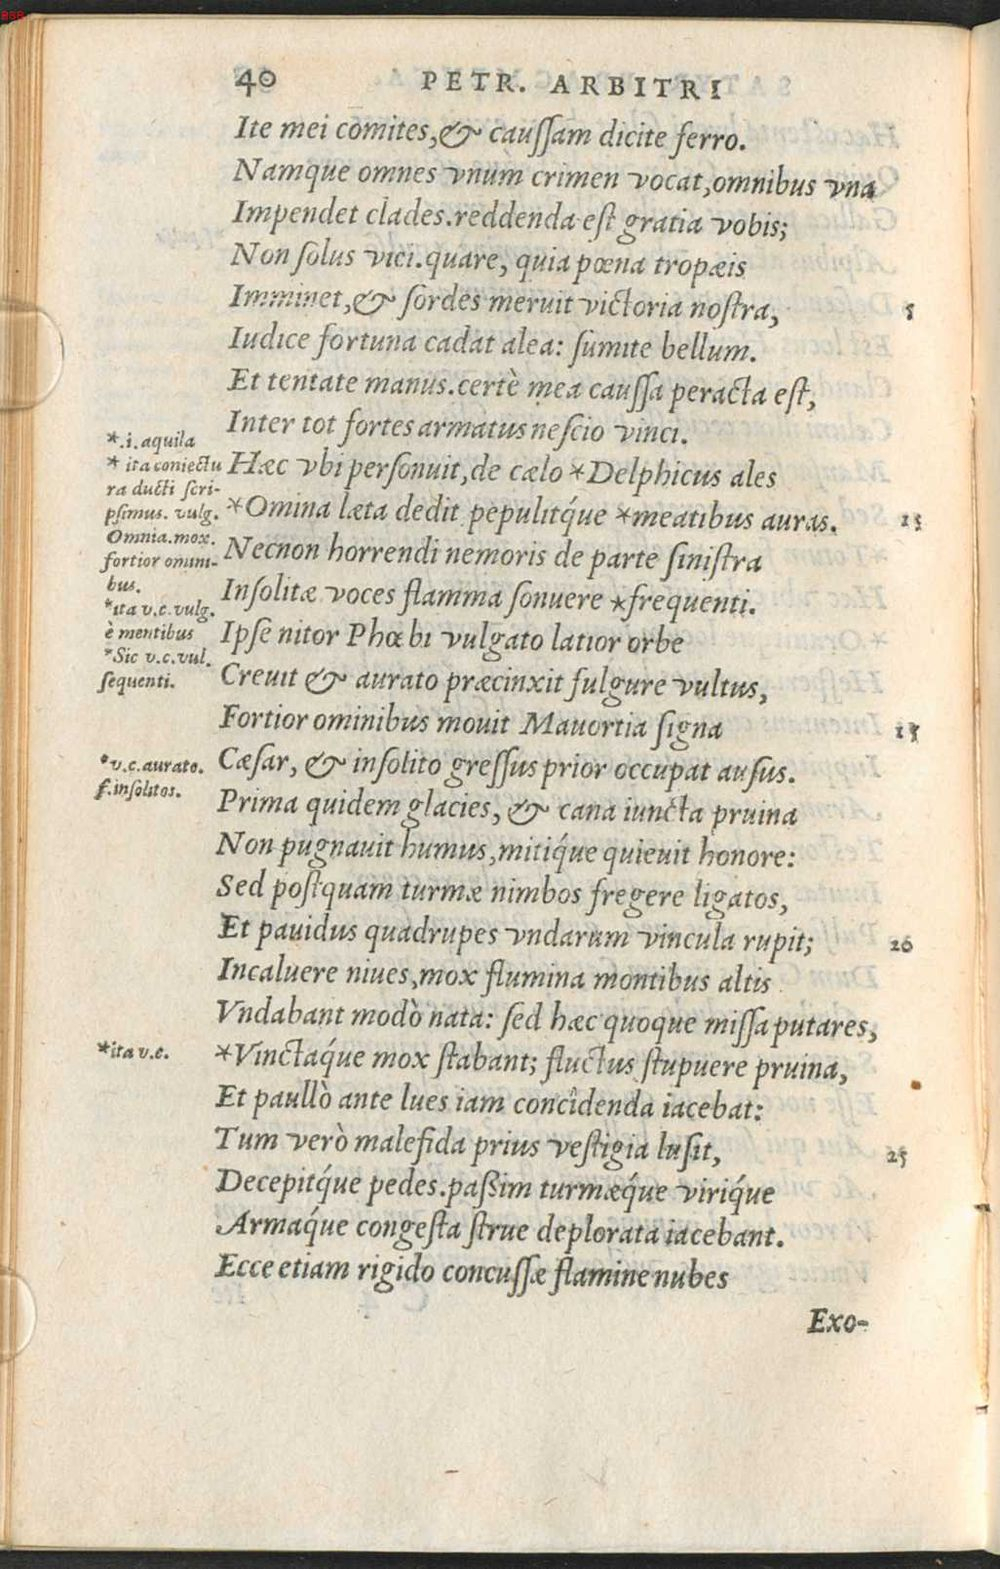 40 PETR. ARBITRI
Ite mei comites, & caussam dicite ferro.
Namque omnes vnum crimen vocat, omnibus vna
Impendet clades. reddenda est gratia vobis;
Non solus vici. quare, quia pœna tropæis
Imminet, & sordes meruit victoria nostra, 5
Iudice fortuna cadat alea: sumite bellum.
Et tentate manus. certè mea caussa peracta est,
Inter tot fortes armatus nescio vinci.
Hæc vbi personuit, de cælo *Delphicus ales
*Omina læta dedit pepulitq́ue *meatibus auras. 15
Necnon horrendi nemoris de parte sinistra
Insolitæ voces flamma sonuere *frequenti.
Ipse nitor Phœbi vulgato latior orbe
Creuit & aurato præcinxit fulgure vultus,
Fortior ominibus mouit Mauortia signa 15
Cæsar, & insolito gressus prior occupat ausus.
Prima quidem glacies, & cana iuncta pruina
Non pugnauit humus, mitiq́ue quieuit honore:
Sed postquam turmæ nimbos fregere ligatos,
Et pauidus quadrupes vndarum vincula rupit; 26
Incaluere niues, mox flumina montibus altis
Vndabant modò nata: sed hæc quoque missa putares,
*Vinctaq́ue mox stabant; fluctus stupuere pruina,
Et paullò ante lues iam concîdenda iacebat:
Tum verò malefida prius vestigia lusit, 25
Decepitq́ue pedes. paßim turmæq́ue viriq́ue
Armaq́ue congesta strue deplorata iacebant.
Ecce etiam rigido concussæ flamine nubes
Exo-
*.i. aquila
* ita coniectu
ra ducti scri-
psimus. vulg.
Omnia. mox.
fortior omni-
bus.
*ita v.c. vulg.
è mentibus
*Sic v.c. vul.
sequenti.
*v.c. aurato.
f. insolitos.
*ita v.c.